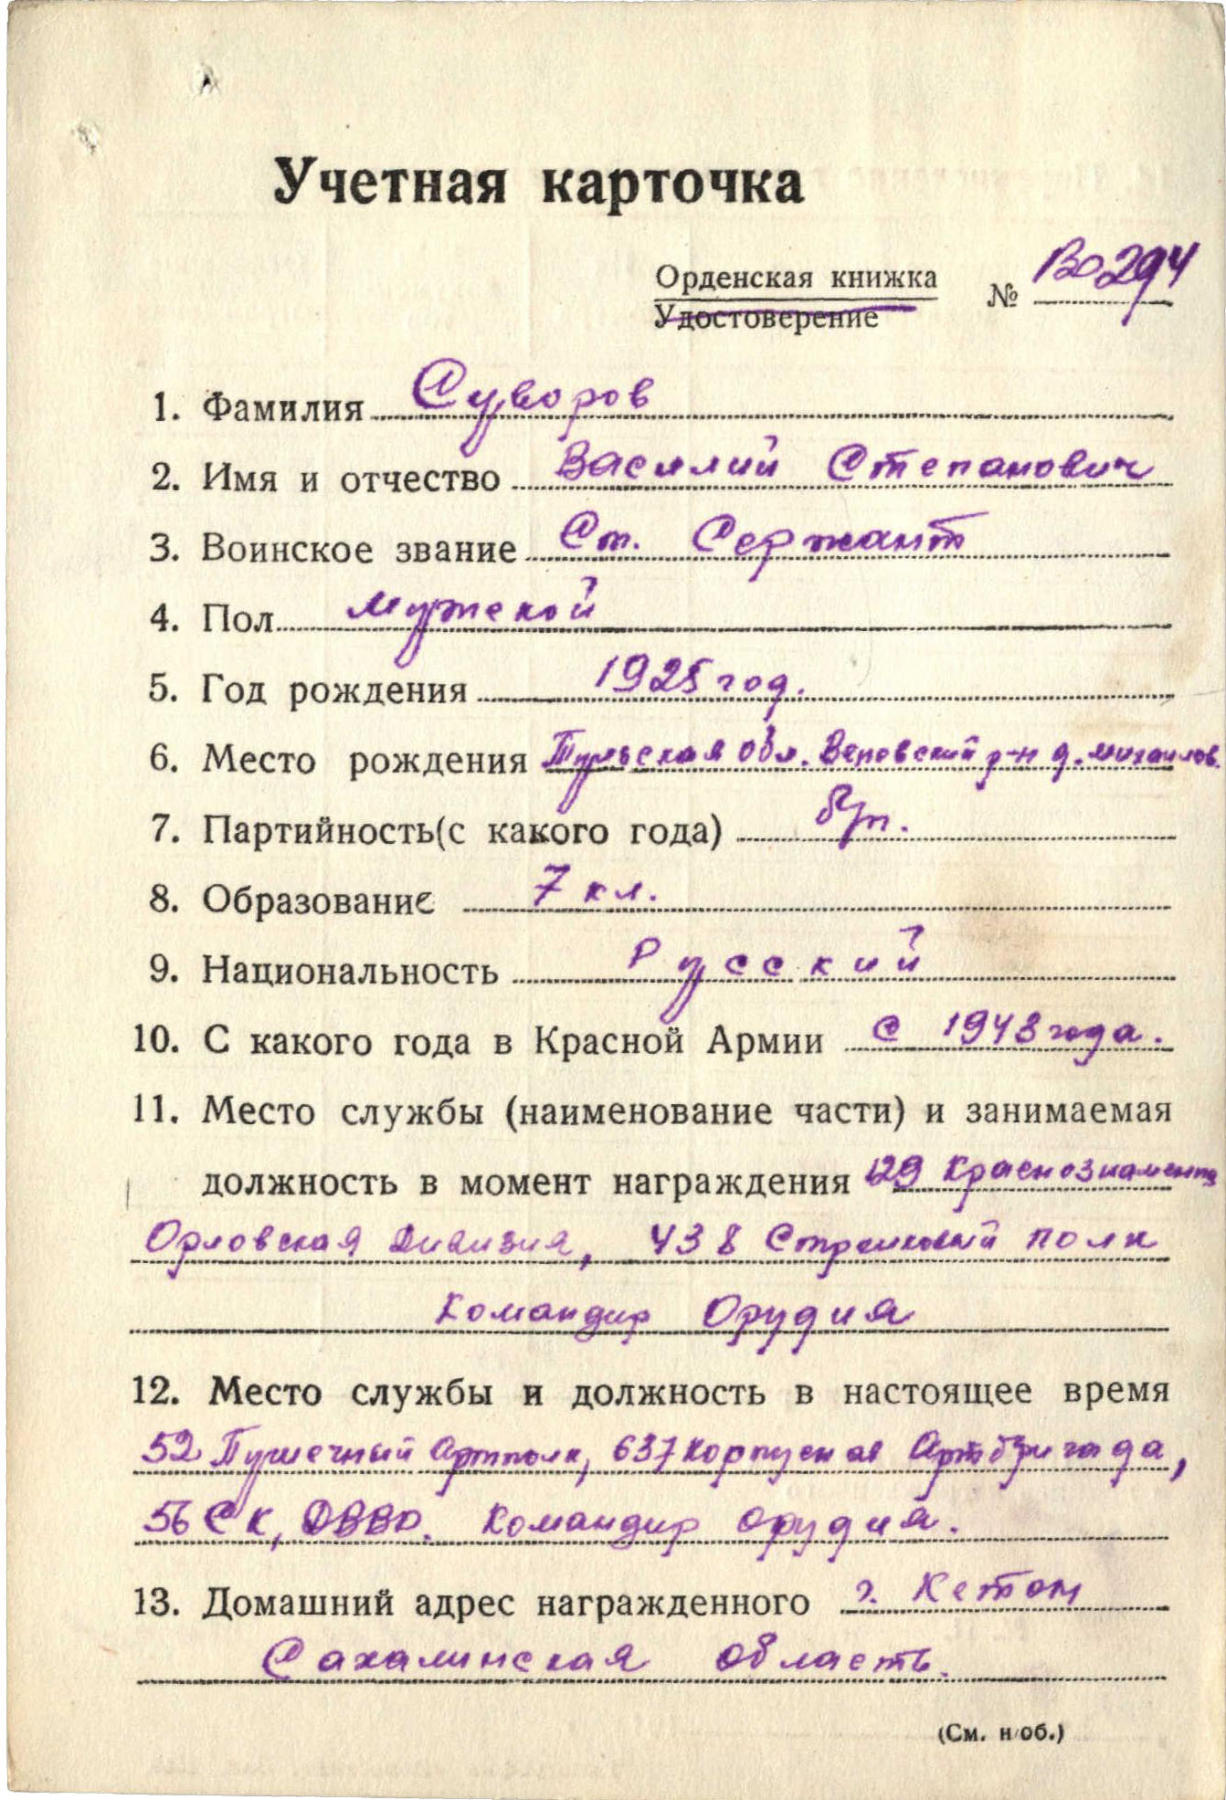 Учетная карточка
Орденская книжка
Удостоверение
№ 130294
1. Фамилия Суворов
2. Имя и отчество Василий Степанович
3. Воинское звание Ст. Сержант
4. Пол мужской
5. Год рождения 1925 год.
6. Место рождения Тульская обл. Веневский р-н д. михайлов.
7. Партийность (с какого года) б/п.
8. Образование 7 кл.
9. Национальность Русский
10. С какого года в Красной Армии с 1943 года.
11. Место службы (наименование части) и занимаемая
должность в момент награждения 129 Краснознаменная
Орловская Дивизия, 438 Стрелковый полк
Командир Орудия
12. Место службы и должность в настоящее время
52 Пушечный Артполк, 637 Корпусная Артбригада,
56 СК, ДВВО. Командир орудия.
13. Домашний адрес награжденного г.
Сахалинская область.
(См. н/об.)